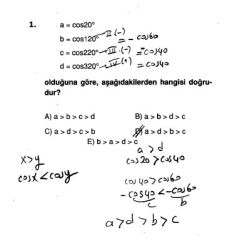 1. a = cos20°
b = cos120° II (-) = - cos60
c = cos220° III (-) = - cos40
d = cos320° IV (+) = cos40
olduğuna göre, aşağıdakilerden hangisi doğru-
dur?
A) a > b > c > d B) a > b > d > c
C) a > d > c > b D) a > d > b > c
E) b > a > d > c
a > d
x > y cos20 > cos40
cosx < cosy
cos40 > cos60
-cos40 < -cos60
c b
a > d > b > c